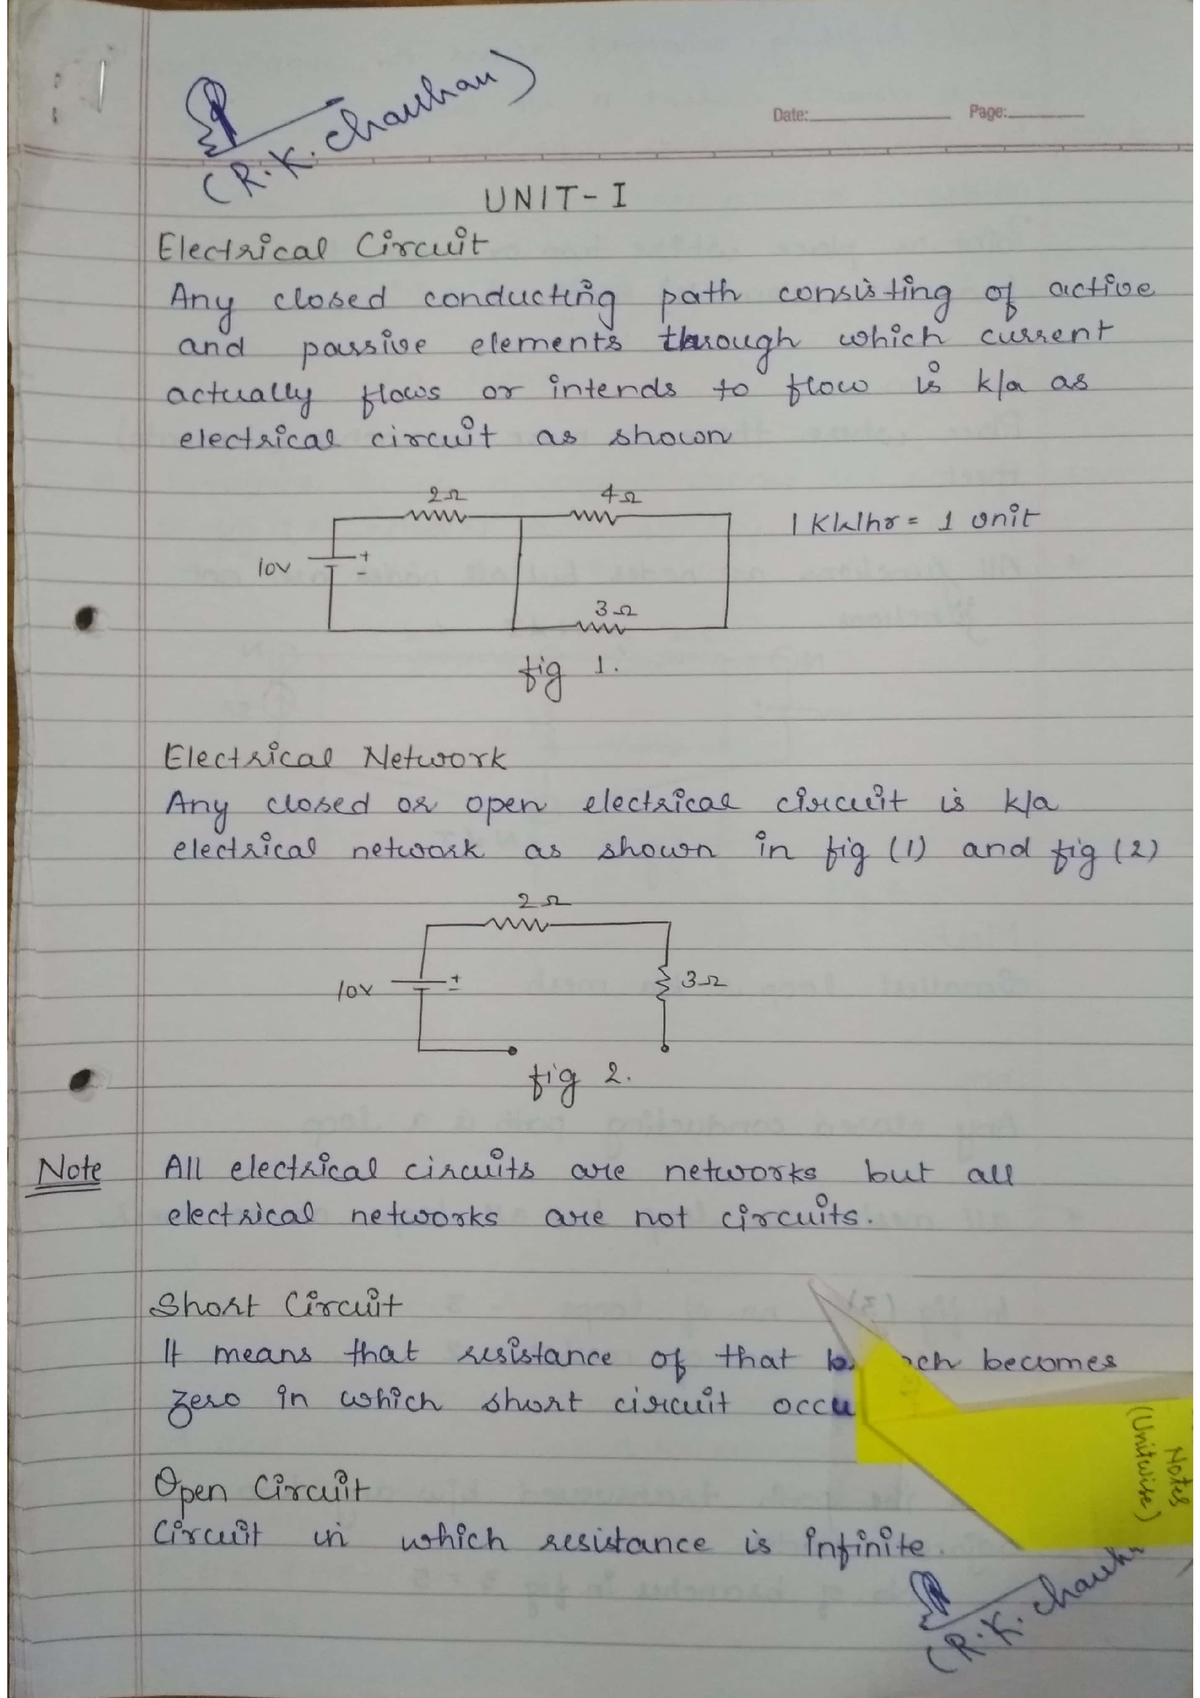 (R.K. Chauhan)
Date: Page:
UNIT-I
Electrical Circuit
Any closed conducting path consisting of active
and passive elements through which current
actually flows or intends to flow is k/a as
electrical circuit as shown
2Ω 4Ω
1 KW/hr = 1 unit
10V + -
3Ω
fig 1.
Electrical Network
Any closed or open electrical circuit is k/a
electrical network as shown in fig (1) and fig (2)
2Ω
10V + - 3Ω
fig 2.
Note All electrical circuits are networks but all
electrical networks are not circuits.
Short Circuit
It means that resistance of that becomes
zero in which short circuit occu
Notes
(Unitwise)
Open Circuit
Circuit in which resistance is infinite.
(R.K. Chauh